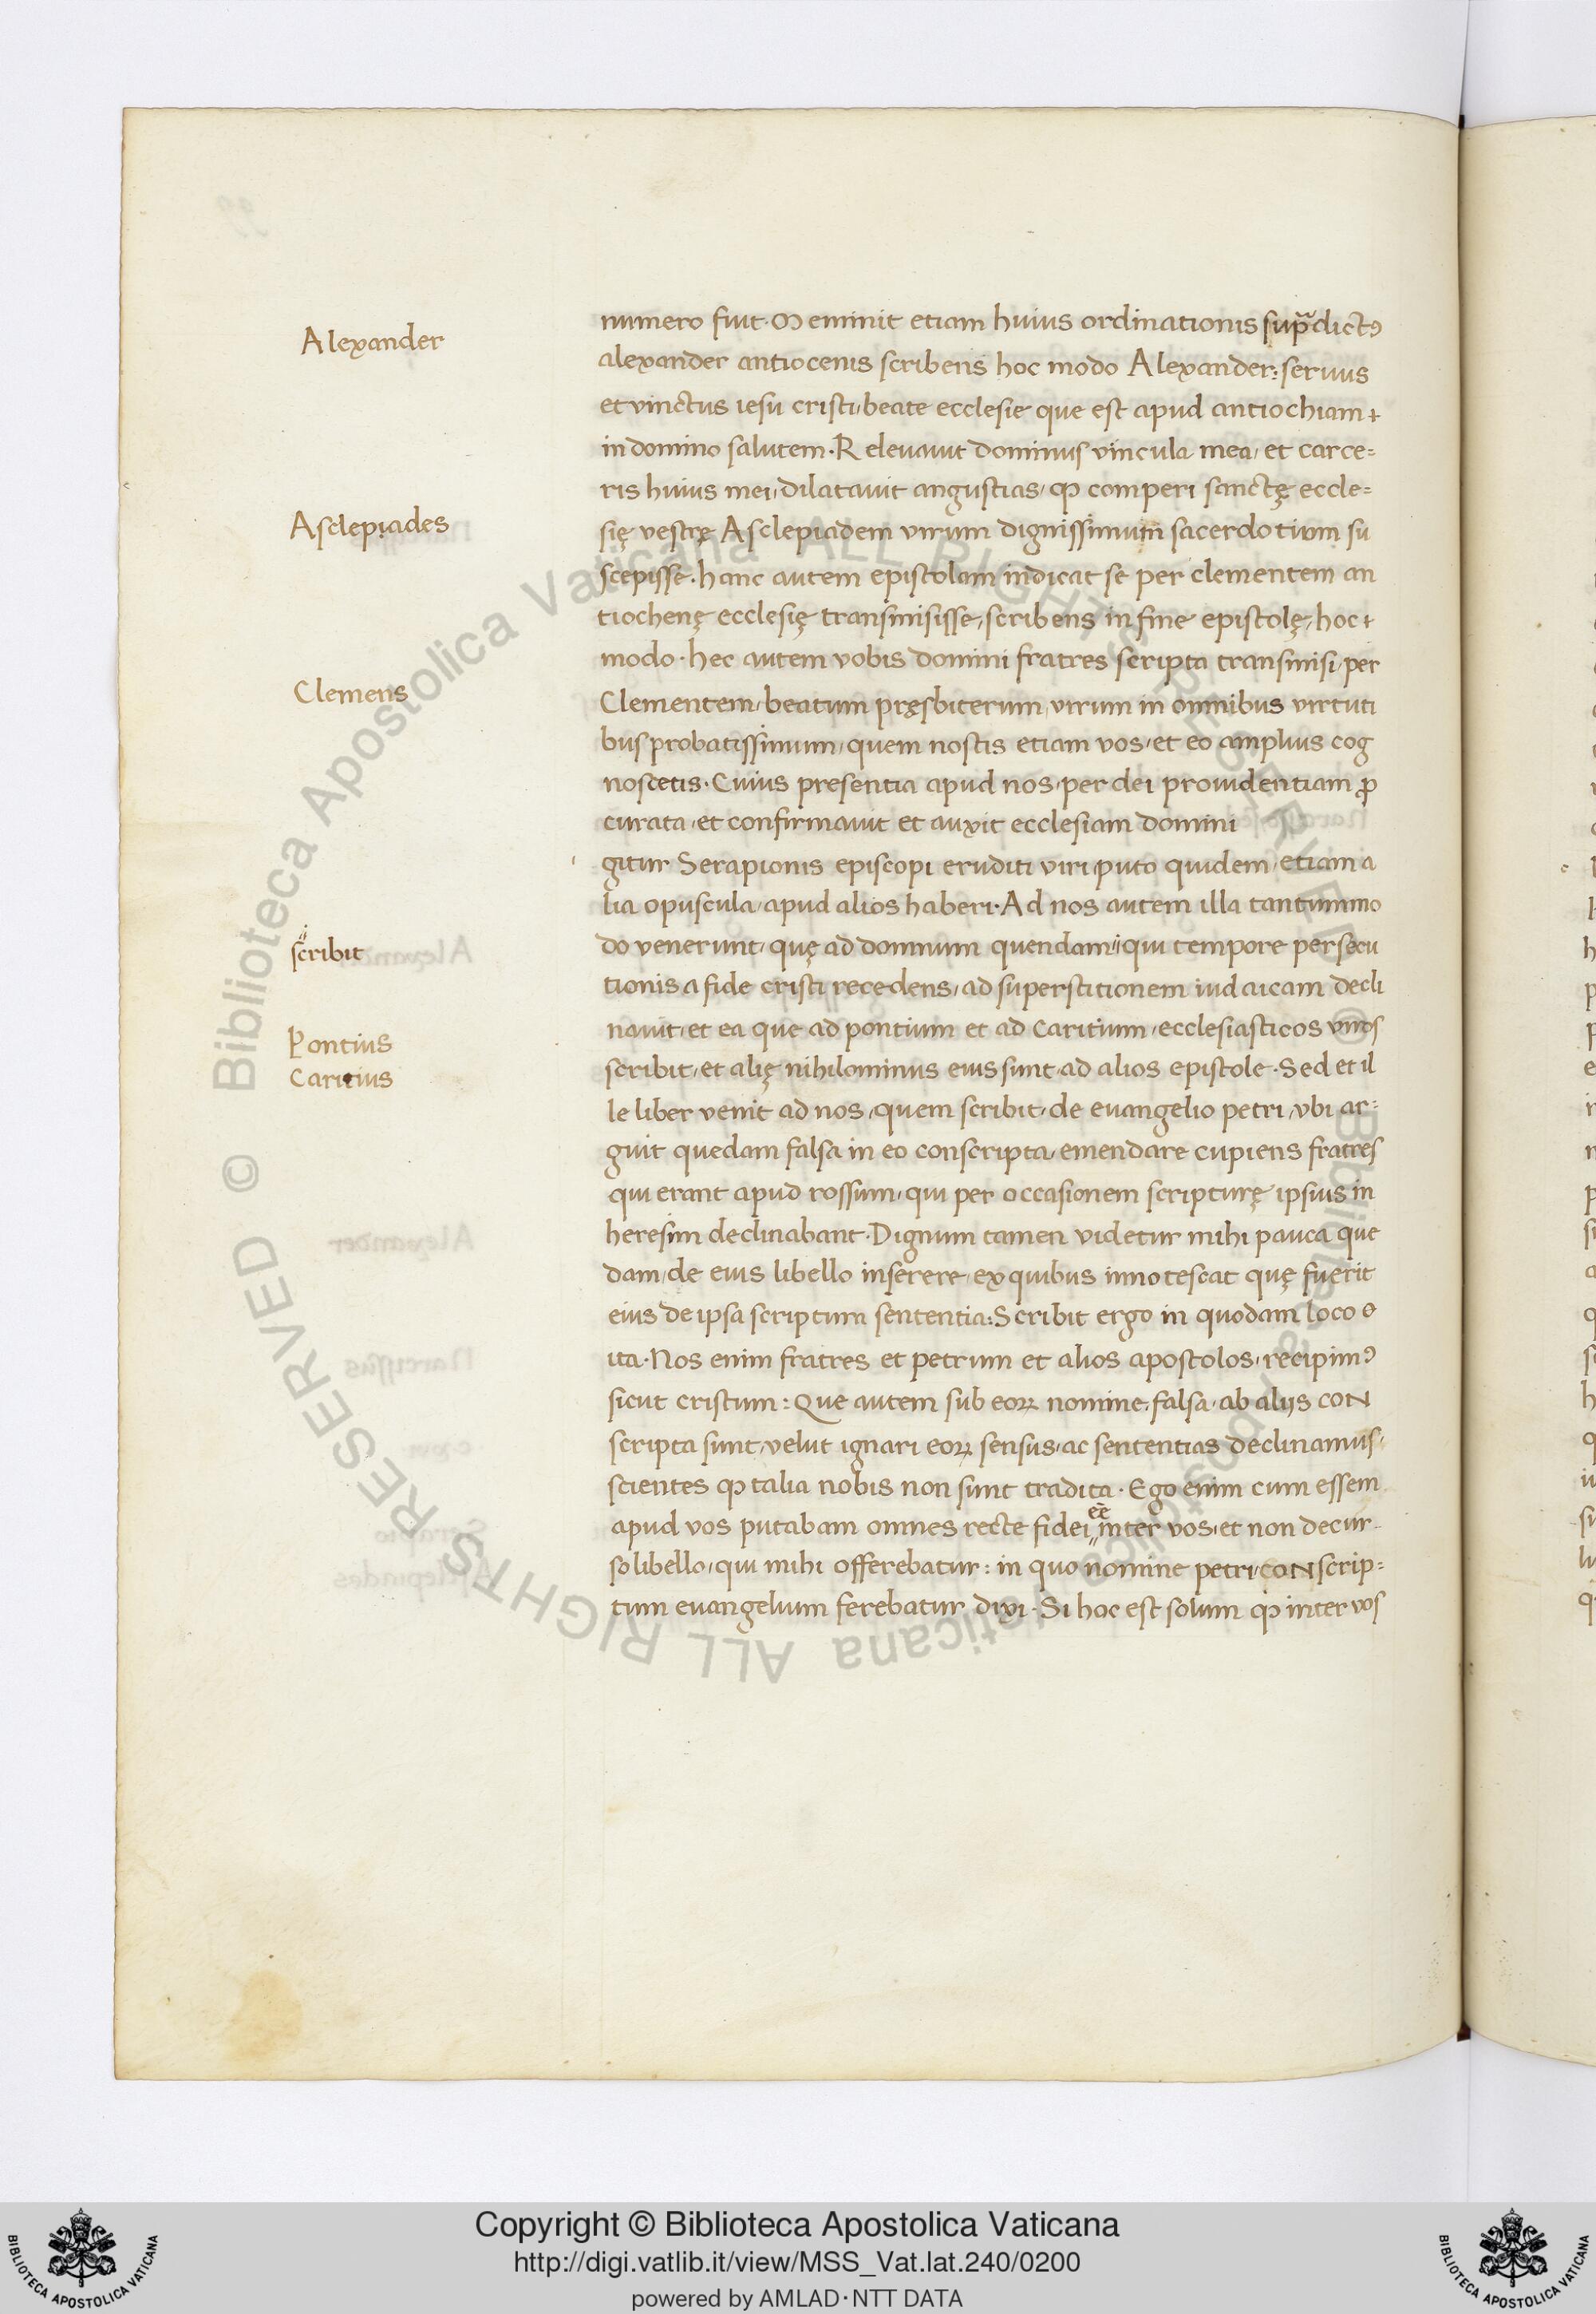 Alexander
numero fuit· Meminit etiam huius ordinationis sup̄dictꝰ
alexander antiocenis scribens hoc modo Alexander: seruus
et vinctus iesu cristi, beate ecclesie que est apud antiochiam
in domino salutem· Releuauit dominus vincula mea, et carce=
ris huius mei, dilatauit angustias, ꝙ comperi sanctę eccle=
Asclepiades
się vestrę Asclepiadem virum dignissimum sacerdotium su
scepisse· hanc autem epistolam indicat se per clementem an
tiochenę ecclesię transmisisse, scribens in fine epistolę, hoc
modo· hec autem vobis domini fratres scripta transmisi, per
Clemens
Clementem, beatum pręsbiterum, virum in omnibus virtuti
bus probatissimum, quem nostis etiam vos, et eo amplius cog
noscetis· Cuius presentia apud nos, per dei prouidentiam ꝓ
curata, et confirmauit et auxit ecclesiam domini
i
gitur Serapionis episcopi eruditi viri, puto quidem, etiam a
lia opuscula, apud alios haberi· Ad nos autem illa tantummo
scribit
do venerunt, quę ad domnum quendam, qui tempore persecu
tionis a fide cristi recedens, ad superstitionem iudaicam decli
Pontius
nauit, et ea que ad pontium et ad caritium, ecclesiasticos viros
Caritius
scribit, et alię nihilominus eius sunt, ad alios epistole· Sed et il
le liber venit ad nos, quem scribit, de euangelio petri, vbi ar=
guit quedam falsa in eo conscripta, emendare cupiens fratres
qui erant apud rossum, qui per occasionem scripturę ipsius in
heresim declinabant· Dignum tamen videtur mihi pauca que
dam, de eius libello inserere, ex quibus innotescat quę fuerit
eius de ipsa scriptum sententia: Scribit ergo in quodam loco
ita· Nos enim fratres et petrum et alios apostolos, recipimꝰ
sicut cristum: Que autem sub eoꝝ nomine, falsa, ab aliis coN
scripta sunt, velut ignari eoꝝ sensus, ac sententias declinamus,
scientes ꝙ talia nobis non sunt tradita· Ego enim cum essem
apud vos putabam omnes recte fidei eē inter vos, et non decur
so libello, qui mihi offerebatur: in quo nomine petri, coNscrip=
tum euangelium ferebatur dixi· Si hoc est solum ꝙ inter vos
Copyright © Biblioteca Apostolica Vaticana
http://digi.vatlib.it/view/MSS_Vat.lat.240/0200
powered by AMLAD·NTT DATA